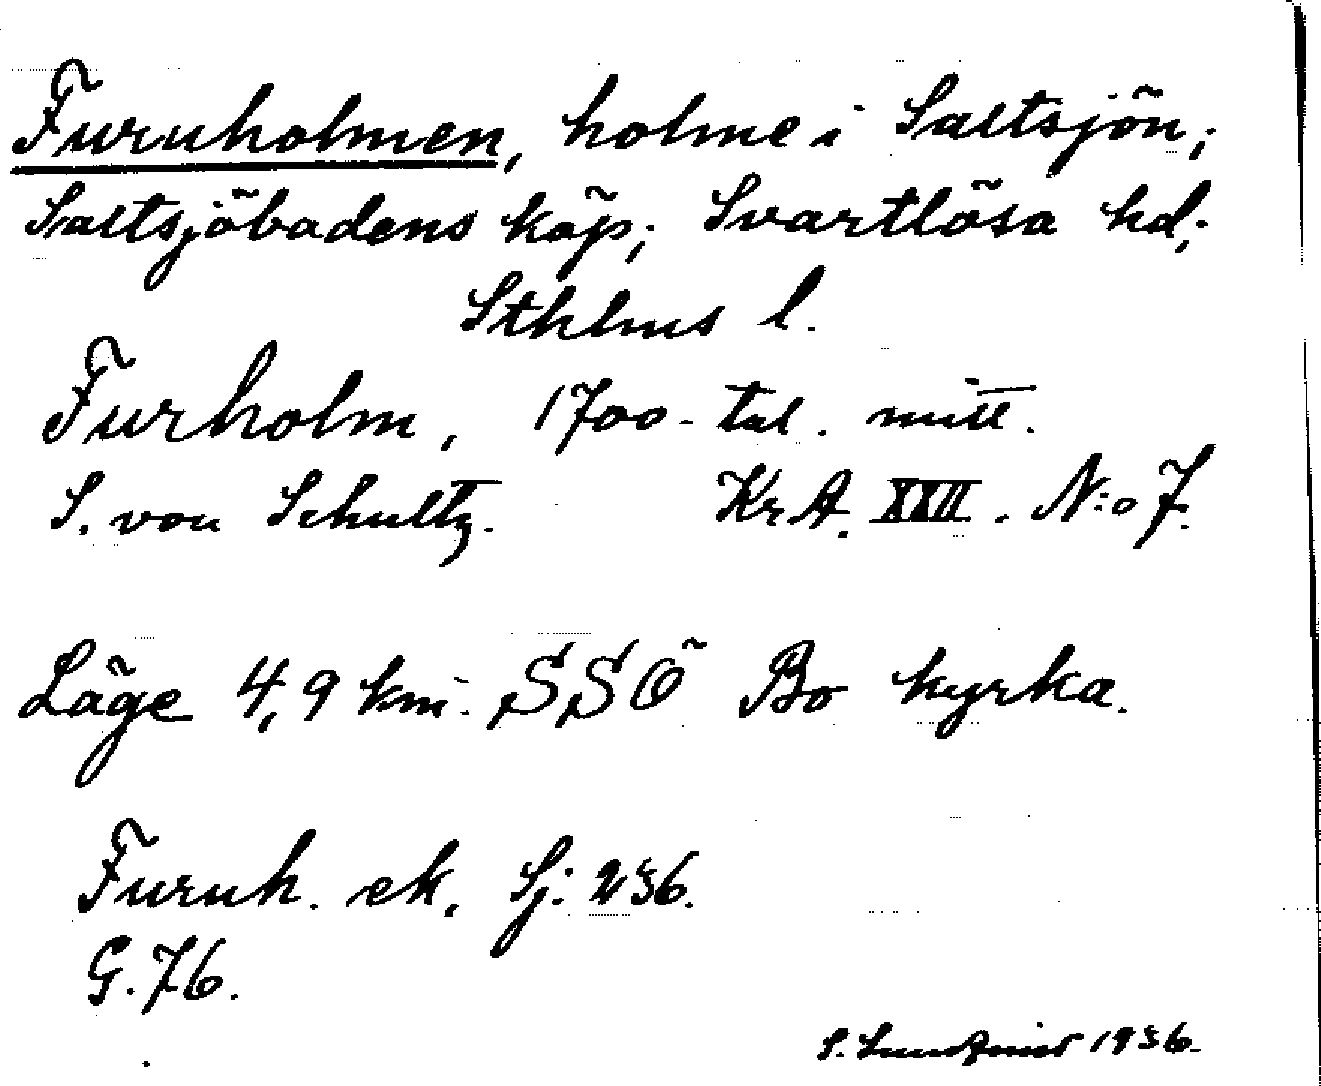 Furuholmen, holme i Saltsjön;
Saltsjöbadens köp; Svartlösa hd;
Sthlms l.
Furholm, 1700-tal. mitt.
S. von Schultz. Kr.A. XXII. N:o 7.
Läge 4,9 km. SSÖ Bo kyrka.
Furuh. ek. Sj: 236.
G. 76.
S. Lundqvist 1936.